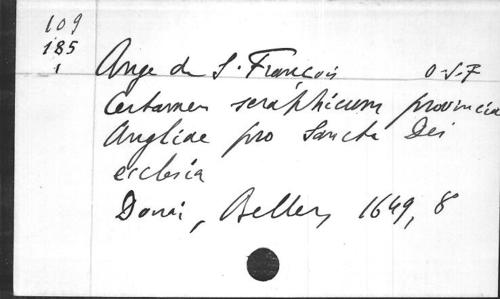 109
185
1
Ange de S. François O.S.F
Certamen seraphicum provincia
Angliae pro Sancta Dei
ecclesia
Douai, Beller, 1649, 8°